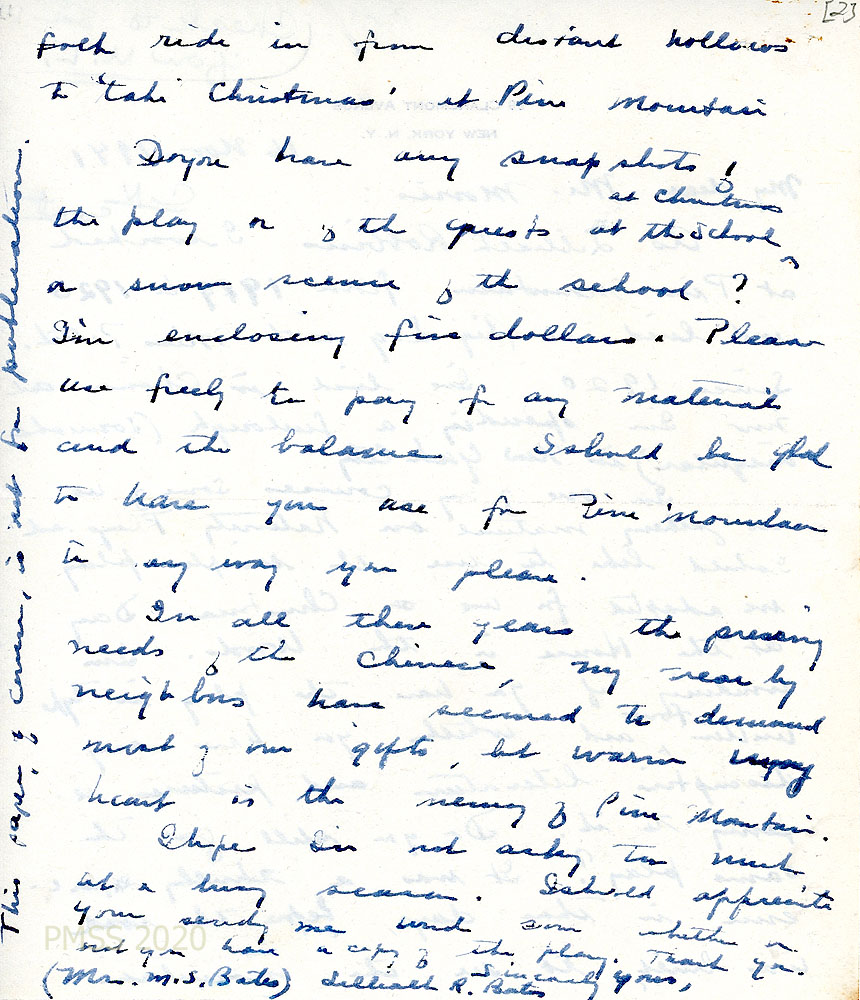 [2]
folk ride in from distant hollows
to 'take Christmas' at Pine Mountain
Do you have any snapshots of
at Christmas
the play or of the guests at the School
or snow scene of the school?
I'm enclosing five dollars. Please
use freely to pay for any material
and the balance I should be glad
to have you use for Pine Mountain
in any way you please.
In all these years the pressing
needs of the Chinese, my near by
neighbors have seemed to demand
most of our gifts, but warm in my
heart is the memory of Pine Mountain.
I hope I'm not asking too much
at a busy season. I should appreciate
your sending me word soon whether or
not you have a copy of the play. Thank you.
Sincerely yours,
(Mrs. M.S. Bates) Lilliath R. Bates
This paper, of course, is not for publication.
PMSS 2020